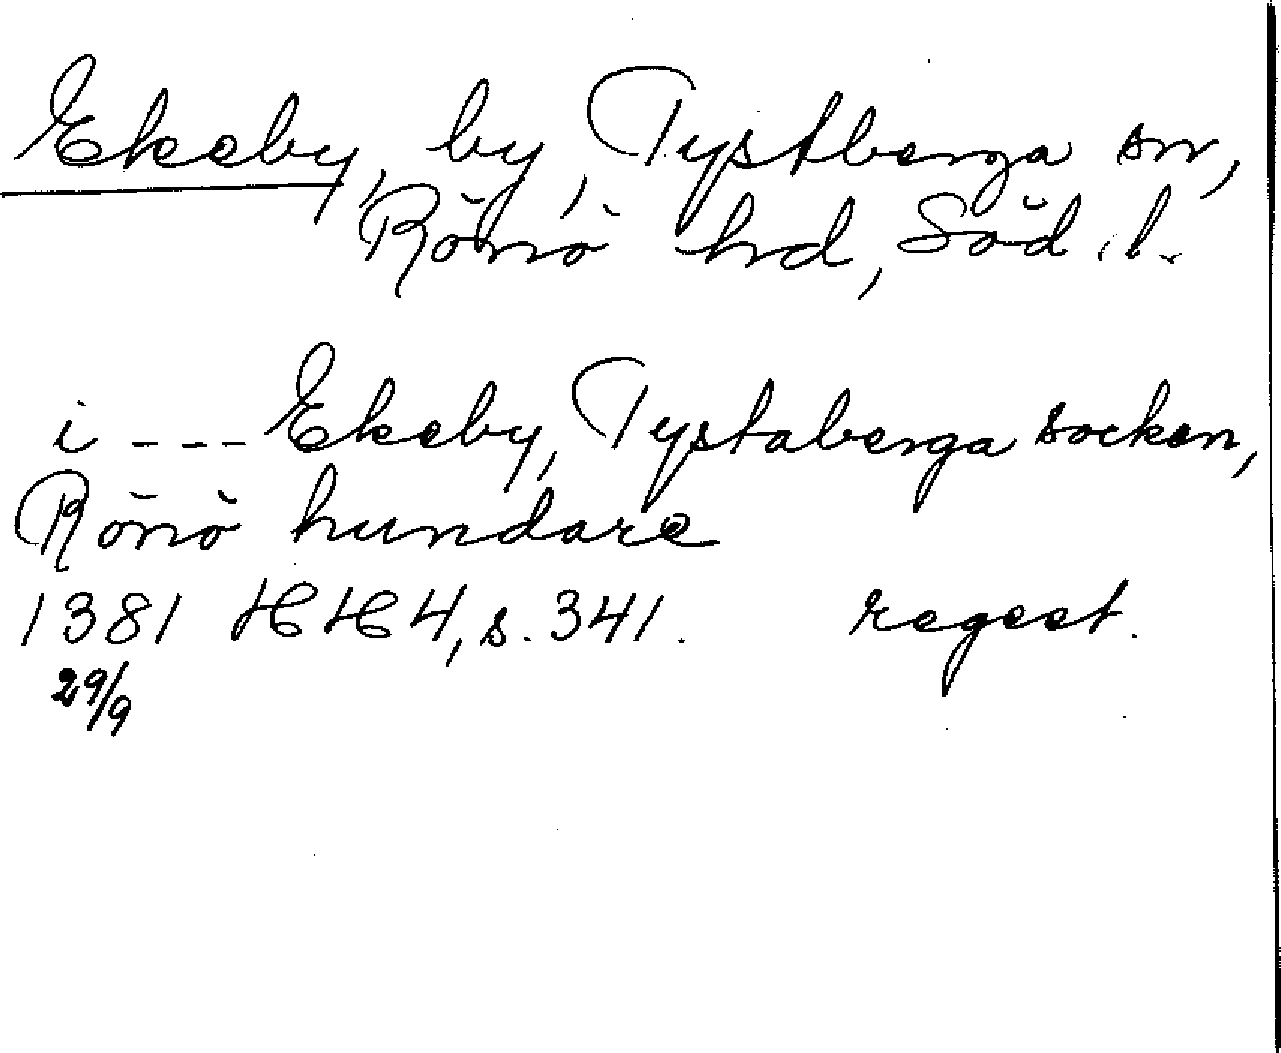 Ekeby, by, Tystberga sn,
Rönö hd, Söd. l.
i --- Ekeby, Tystaberga socken,
Rönö hundare
1381 HH 4, s. 341. regest.
29/9